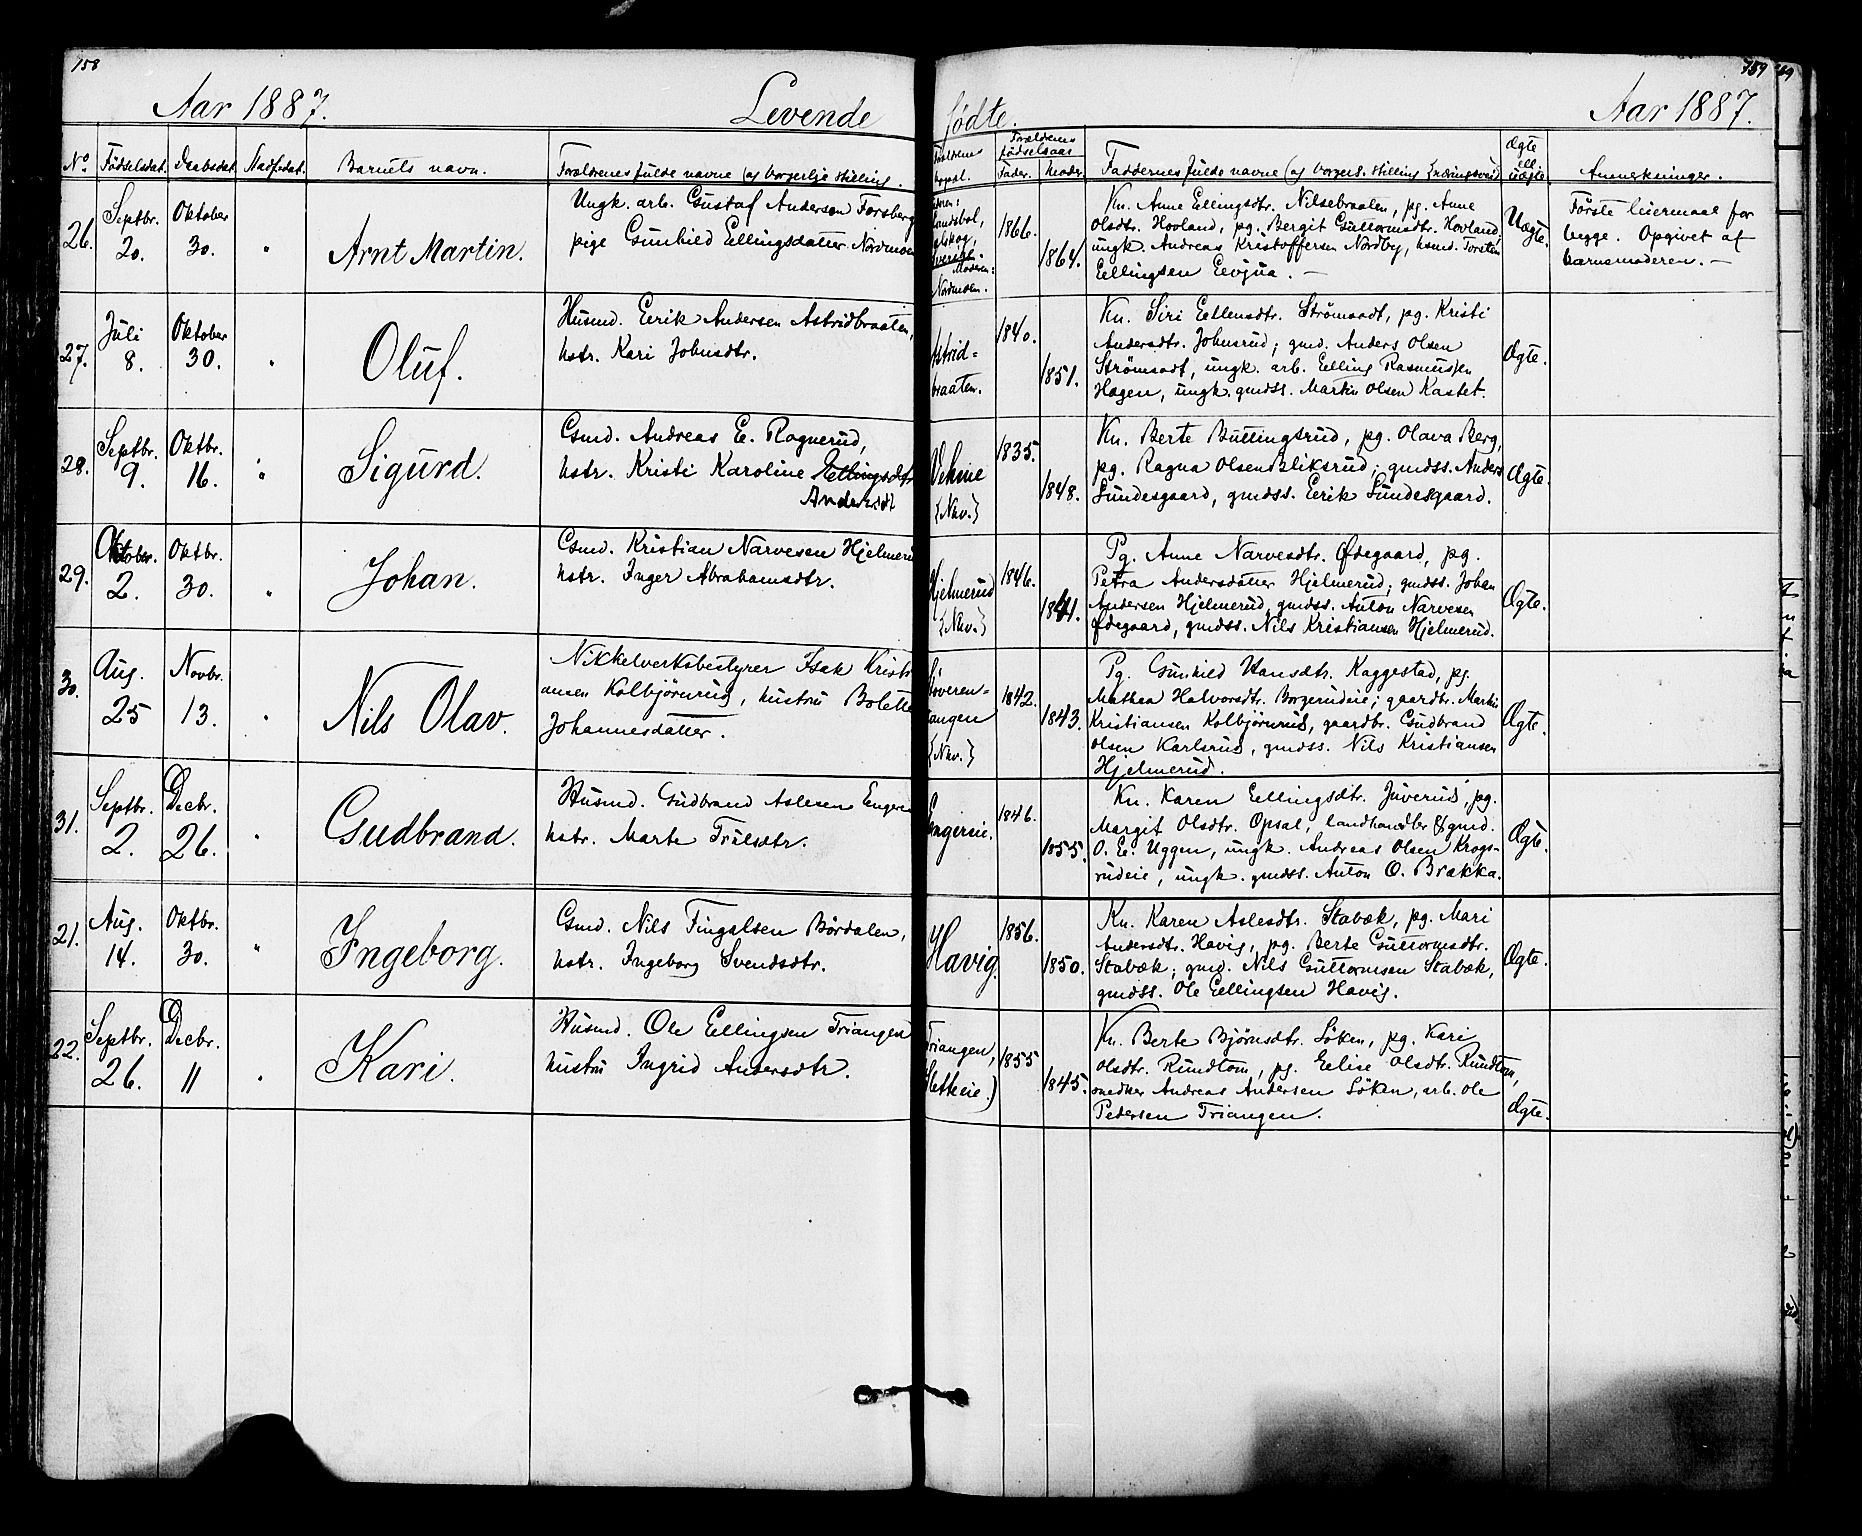 158
Aar 1887.
Levende
No
Fødselsdat.
Daabsdat.
Stadf.dat.
Barnets navn.
Forældrenes fulde navne (og borgerlige stilling.
26.
Septbr. 20.
Oktober 30.
"
Arnt Martin.
Ungk. arb. Gustaf Andersen Forsberg
pige Gunhild Eellingsdatter Nordmoen
27.
Juli 8.
Oktober 30.
"
Oluf.
Husmd. Eerik Andersen Astridbraaten,
hstr. Kari Johnsdtr.
28.
Septbr. 9.
Oktbr. 16.
"
Sigurd.
Gmd. Andreas E. Ragnerud,
hstr. Kristi Karoline Ellingsdtr
Andersdtr
29.
Oktober. 2.
Oktbr. 30.
"
Johan.
Gmd. Kristian Narvesen Hjelmerud
hstr. Inger Abrahamsdtr.
30.
Aug. 25
Novbr. 13.
"
Nils Olav.
Nikkelverksbestyrer Isak Kristi
ansen Kolbjørnrud, hustru Bolette
Johannesdatter.
31.
Septbr. 2.
Decbr. 26.
"
Gudbrand.
Husmd. Gudbrand Aslesen Engere
hstr. Marte Trulsdtr.
21.
Aug. 14.
Oktbr. 30.
"
Ingeborg.
Gmd. Nils Fingalsen Børdalen,
hstr. Ingeborg Svendsdtr.
22.
Septbr. 26.
Decbr. 11
"
Kari.
Husmd. Ole Eellingsen Triangen
hustru Ingrid Andersdtr.
159
fødte.
Aar 1887.
Forældrenes fødselsaar
Fader.
Moder.
Faddernes fulde navne (og borgerl. stilling (næringsvei)
Ægte ell. uægte.
Anmerkninger.
Moderen:
Nordmoen.
1866.
1864.
Kn. Anne Eellingsdtr. Nilsebraaten, pg. Anne
Olsdtr. Hovland, pg. Bergit Guttormsdtr. Hovland,
ungk. Andreas Kristoffersen Nordby, hsmd. Torsten
Eellingsen Eevjua. —
Uægte.
Første leiermaal for
begge. Opgivet af
barnemoderen. —
Astrid=
braaten.
1840.
1851.
Kn. Siri Eellensdtr. Strømsodt, pg. Kristi
Andersdtr. Johnsrud; gmd. Anders Olsen
Strømsodt, ungk. arb. Eelling Rasmussen
Hagen, ungk. gmdss. Martin Olsen Kastet.
Ægte.
Veksne
{Nkv.}
1835.
1848.
Kn. Berte Buttingsrud, pg. Olava Berg,
pg. Ragna Olsen Bliksrud; gmdss. Anders
Sundesgaard, gmdss. Eerik Sundesgaard.
Ægte.
Hjelmerud
{Nkv.}
1846.
1841.
Pg. Anne Narvesdtr. Ødegaard, pg.
Petra Andersdatter Hjelmerud; gmdss. Johan
Andersen Hjelmerud, gmdss. Anton Narvesen
Ødegaard, gmdss. Nils Kristiansen Hjelmerud.
Ægte.
{Nkv.}
1842.
1843.
Pg. Gunhild Hansdtr. Kaggestad, pg.
Mathea Halvorsdtr. Borgerudeie; gaardbr. Martin
Kristiansen Kolbjørnrud, gaardbr. Gudbrand
Olsen Karlsrud, gmdss. Nils Kristiansen
Hjelmerud.
Ægte.
Engereie.
1846.
1855.
Kn. Karen Eellingsdtr. Juverud, pg.
Margit Olsdtr. Opsal, landhandler & gmd.
O. E. Uggen, ungk. Andreas Olsen Krogs-
rudeie, ungk. gmdss. Anton O. Brakka.
Ægte.
Havig
1856.
1850.
Kn. Karen Aslesdtr. Stabæk, pg. Mari
Andersdtr. Havig, pg. Berte Guttormsdtr.
Stabæk; gmd. Nils Guttormsen Stabæk,
gmdss. Ole Eellingsen Havig.
Ægte.
Triangen,
1855
1845.
Kn. Berte Bjørnsdtr. Søken, pg. Kari
Olsdtr. Rundtom, pg. Eelise Olsdtr. Rundtom,
snedker Andreas Andersen Søken, arb. Ole
Pedersen Triangen.
Ægte.